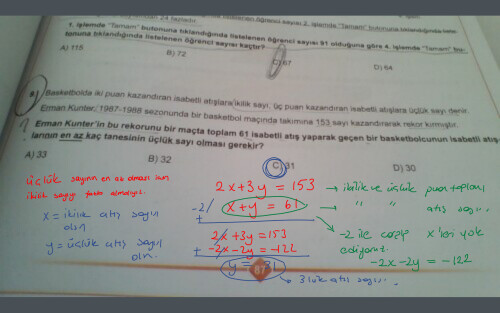 1. işlemde "Tamam" butonuna tıklandığında listelenen öğrenci sayısı 91 olduğuna göre 4. işlemde "Tamam" bu-
tonuna tıklandığında listelenen öğrenci sayısı kaçtır?
A) 115 B) 72 C) 67 D) 64
Basketbolda iki puan kazandıran isabetli atışlara ikilik sayı, üç puan kazandıran isabetli atışlara üçlük sayı denir.
Erman Kunter, 1987-1988 sezonunda bir basketbol maçında takımına 153 sayı kazandırarak rekor kırmıştır.
Erman Kunter'in bu rekorunu bir maçta toplam 61 isabetli atış yaparak geçen bir basketbolcunun isabetli atış-
larının en az kaç tanesinin üçlük sayı olması gerekir?
A) 33 B) 32 C) 31 D) 30
üçlük sayının en az olması için
ikilik sayıyı fazla almalıyız.
x = ikilik atış sayısı
olsn
y = üçlük atış sayısı
olsn.
2x+3y = 153 → ikilik ve üçlük puan toplamı
-2/ x+y = 61 → " " atış sayısı.
+
2x+3y = 153
+ -2x-2y = -122
y = 31
→ -2 ile çarpıp x'leri yok
ediyoruz.
-2x-2y = -122
→ 3'lük atış sayısı.
87